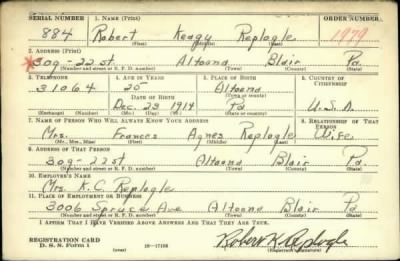 SERIAL NUMBER 1. NAME (Print) ORDER NUMBER
884 Robert Keagy Replogle 1979
(First) (Middle) (Last)
2. ADDRESS (Print)
309-22st Altoona Blair Pa.
(Number and street or R. F. D. number) (Town) (County) (State)
3. TELEPHONE 4. AGE IN YEARS 5. PLACE OF BIRTH 6. COUNTRY OF CITIZENSHIP
31064 25 Altoona
DATE OF BIRTH (Town or county)
Dec. 23 1914 Pa U.S.A.
(Mo.) (Day) (Yr.) (State or country)
7. NAME OF PERSON WHO WILL ALWAYS KNOW YOUR ADDRESS 8. RELATIONSHIP OF THAT PERSON
Mrs. Frances Agnes Replogle Wife
(Mr., Mrs., Miss) (First) (Middle) (Last)
9. ADDRESS OF THAT PERSON
309-22st Altoona Blair Pa.
(Number and street or R. F. D. number) (Town) (County) (State)
10. EMPLOYER'S NAME
Mrs. K. C. Replogle
11. PLACE OF EMPLOYMENT OR BUSINESS
3006 Spruce Ave Altoona Blair Pa
(Number and street or R. F. D. number) (Town) (County) (State)
I AFFIRM THAT I HAVE VERIFIED ABOVE ANSWERS AND THAT THEY ARE TRUE.
REGISTRATION CARD
D. S. S. Form 1 16-17105 Robert K. Replogle
(over) (Registrant's signature)